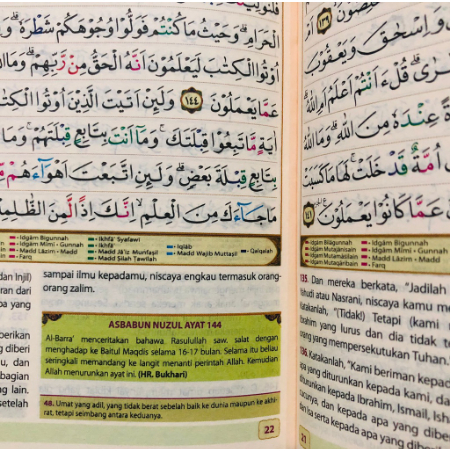 فَلَنُوَلِّيَنَّكَ
الْحَرَامِ ۗ وَحَيْثُ مَا كُنْتُمْ فَوَلُّوا وُجُوهَكُمْ شَطْرَهُ ۗ
أُوتُوا الْكِتٰبَ لَيَعْلَمُونَ أَنَّهُ الْحَقُّ مِنْ رَبِّهِمْ ۗ وَمَا
عَمَّا يَعْمَلُونَ ١٤٤ وَلَئِنْ أَتَيْتَ الَّذِينَ أُوتُوا الْكِتٰبَ
آيَةٍ مَّا تَبِعُوا قِبْلَتَكَ ۚ وَمَا أَنْتَ بِتَابِعٍ قِبْلَتَهُمْ ۚ وَمَا
بِتَابِعٍ قِبْلَةَ بَعْضٍ ۗ وَلَئِنِ اتَّبَعْتَ أَهْوَاءَهُمْ
مَا جَاءَكَ مِنَ الْعِلْمِ ۙ إِنَّكَ إِذًا لَّمِنَ الظّٰلِمِينَ
• Idgam Bigunnah • Ikhfa' Syafawi
• Idgam Mimi • Ikhfa' • Iqlab • Qalqalah
• Madd Jā'iz Munfaṣil • Madd Wajib Muttaṣil
• Farq • Madd Silah Tawilah
sampai ilmu kepadamu, niscaya engkau termasuk orang-
orang zalim.
ASBABUN NUZUL AYAT 144
Al-Barra' menceritakan bahawa Rasulullah saw. salat dengan
menghadap ke Baitul Maqdis selama 16-17 bulan. Selama itu beliau
seringkali memandang ke langit menanti perintah Allah. Kemudian
Allah menurunkan ayat ini. (HR. Bukhari)
48. Umat yang adil, yang tidak berat sebelah baik ke dunia maupun ke akhi-
rat, tetapi seimbang antara keduanya.
22
dan Injil)
ran dari
pa yang
berikan
g diberi
u, dan
bagian
g lain.
setelah
١٣٩
وَإِسْحٰقَ وَيَعْقُوبَ
قُلْ ءَأَنْتُمْ أَعْلَمُ أَمِ اللّٰهُ ۗ
عِنْدَهُ مِنَ اللّٰهِ ۗ وَمَا اللّٰهُ
أُمَّةٌ قَدْ خَلَتْ ۚ لَهَا مَا كَسَبَتْ
عَمَّا كَانُوا يَعْمَلُونَ ١٤١
• Idgām Bilagunnah • Idgam Bigunnah
• Idgam Mutajānisain • Idgam Mimi • Gunnah
• Idgam Mutaqāribain • Madd Lāzim • Madd
• Farq
135. Dan mereka berkata, "Jadilah
Yahudi atau Nasrani, niscaya kamu me
Katakanlah, "(Tidak!) Tetapi (kami
Ibrahim yang lurus dan dia tidak t
orang yang mempersekutukan Tuhan."
136. Katakanlah, "Kami beriman kepad
apa yang diturunkan kepada kami, da
diturunkan kepada Ibrahim, Ismail, Ish
cucunya, dan kepada apa yang diber
dan Isa serta kepada apa yang diberi
21